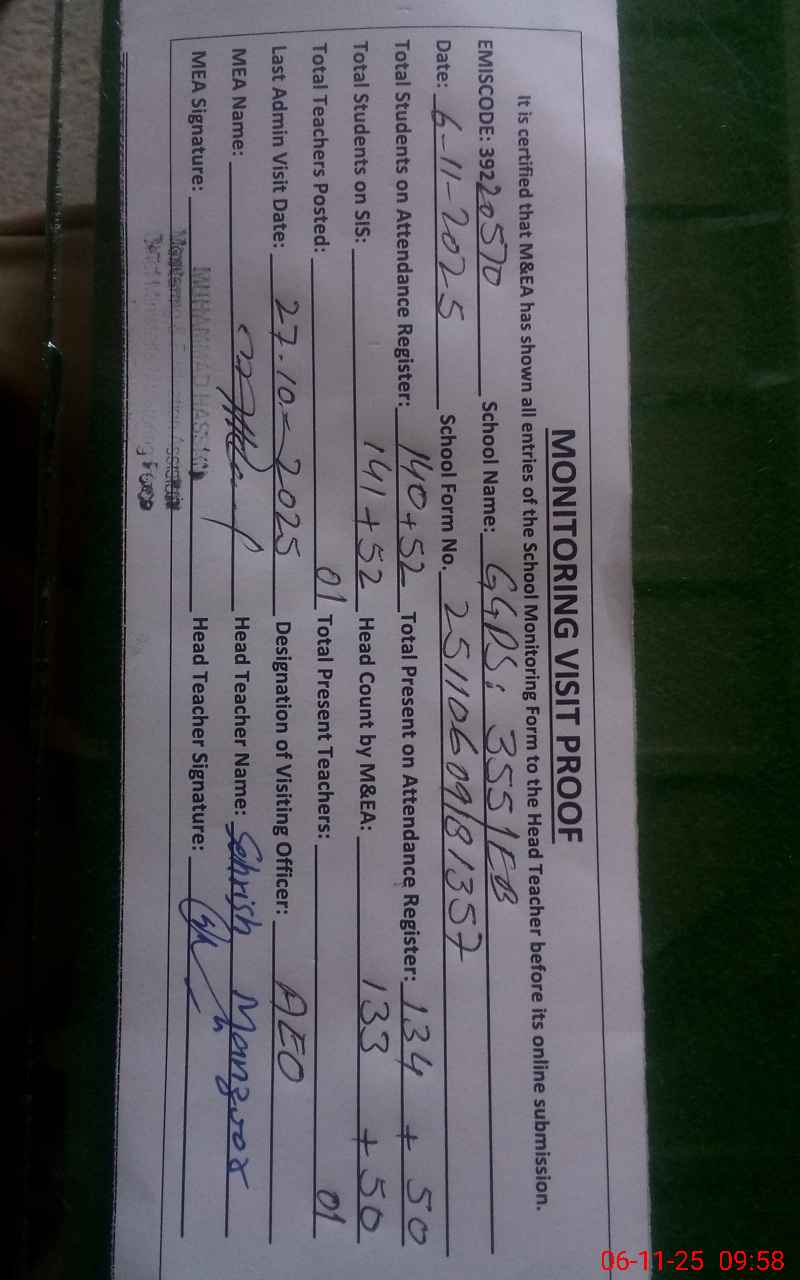 MONITORING VISIT PROOF
It is certified that M&EA has shown all entries of the School Monitoring Form to the Head Teacher before its online submission.
EMISCODE: 39220570 School Name: GGPS: 355/EB
Date: 6-11-2025 School Form No. 25110609181357
Total Students on Attendance Register: 140+52 Total Present on Attendance Register: 134 + 50
Total Students on SIS: 141+52 Head Count by M&EA: 133 + 50
Total Teachers Posted: 01 Total Present Teachers: 01
Last Admin Visit Date: 27.10.-2025 Designation of Visiting Officer: AEO
MEA Name: Head Teacher Name: Sehrish Manzoor
MEA Signature: MUHAMMAD HASSAN Head Teacher Signature:
06-11-25 09:58